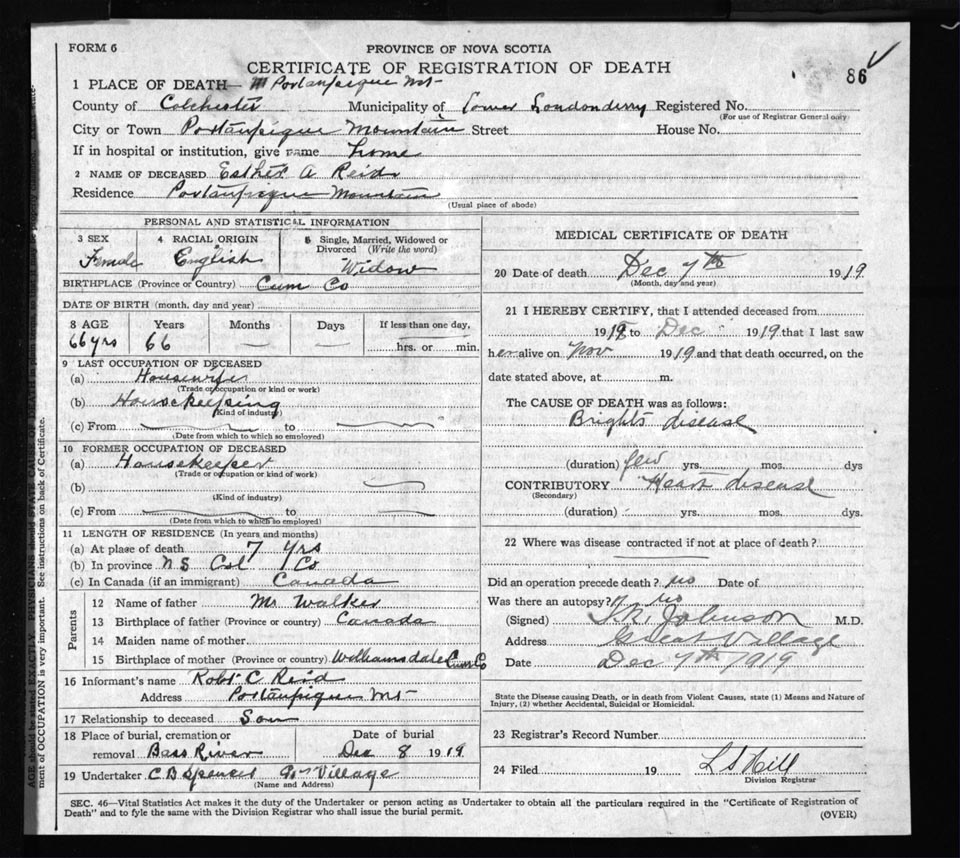 FORM 6
PROVINCE OF NOVA SCOTIA
CERTIFICATE OF REGISTRATION OF DEATH
86
1 PLACE OF DEATH— Portaupique Mt
County of Colchester Municipality of Lower Londonderry Registered No.
(For use of Registrar General only)
City or Town Portaupique Mountain Street House No.
If in hospital or institution, give name home
2 NAME OF DECEASED Esther A Reid
Residence Portaupique Mountain
(Usual place of abode)
PERSONAL AND STATISTICAL INFORMATION
3 SEX 4 RACIAL ORIGIN 5 Single, Married, Widowed or Divorced (Write the word)
Female English Widow
BIRTHPLACE (Province or Country) Cum Co
DATE OF BIRTH (month, day and year)
8 AGE Years Months Days If less than one day,
66 yrs 66 — — hrs. or min.
9 LAST OCCUPATION OF DECEASED
(a) Housewife
(Trade or occupation or kind or work)
(b) Housekeeping
(Kind of industry)
(c) From to
(Date from which to which so employed)
10 FORMER OCCUPATION OF DECEASED
(a) Housekeeper
(Trade or occupation or kind of work)
(b)
(Kind of industry)
(c) From to
(Date from which to which so employed)
11 LENGTH OF RESIDENCE (In years and months)
(a) At place of death 7 yrs
(b) In province N S Col Co
(c) In Canada (if an immigrant) Canada
Parents
12 Name of father Mr Walker
13 Birthplace of father (Province or country) Canada
14 Maiden name of mother
15 Birthplace of mother (Province or country) Cum Co
16 Informant's name Robt C Reid
Address Portaupique Mt
17 Relationship to deceased Son
18 Place of burial, cremation or Date of burial
removal Bass River Dec 8 1919
19 Undertaker C B Spencer Gt Village
(Name and Address)
MEDICAL CERTIFICATE OF DEATH
20 Date of death Dec 7th 1919
(Month, day and year)
21 I HEREBY CERTIFY, that I attended deceased from
1919 to Dec 1919 that I last saw
her alive on Nov 1919 and that death occurred, on the
date stated above, at m.
The CAUSE OF DEATH was as follows:
Brights disease
(duration) few yrs. mos. dys
CONTRIBUTORY Heart disease
(Secondary)
(duration) yrs. mos. dys.
22 Where was disease contracted if not at place of death?
Did an operation precede death? no Date of
Was there an autopsy? no
(Signed) Johnson M.D.
Address Great Village
Date Dec 7th 1919
State the Disease causing Death, or in death from Violent Causes, state (1) Means and Nature of
Injury, (2) whether Accidental, Suicidal or Homicidal.
23 Registrar's Record Number
24 Filed 19 L S Hill
Division Registrar
SEC. 46—Vital Statistics Act makes it the duty of the Undertaker or person acting as Undertaker to obtain all the particulars required in the "Certificate of Registration of
Death" and to fyle the same with the Division Registrar who shall issue the burial permit.
(OVER)
ment of OCCUPATION is very important. See instructions on back of Certificate.